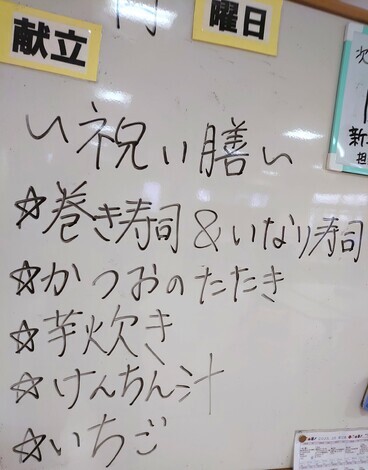 献立
曜日
〃祝い膳〃
☆巻き寿司&いなり寿司
☆かつおのたたき
☆芋炊き
☆けんちん汁
☆いちご